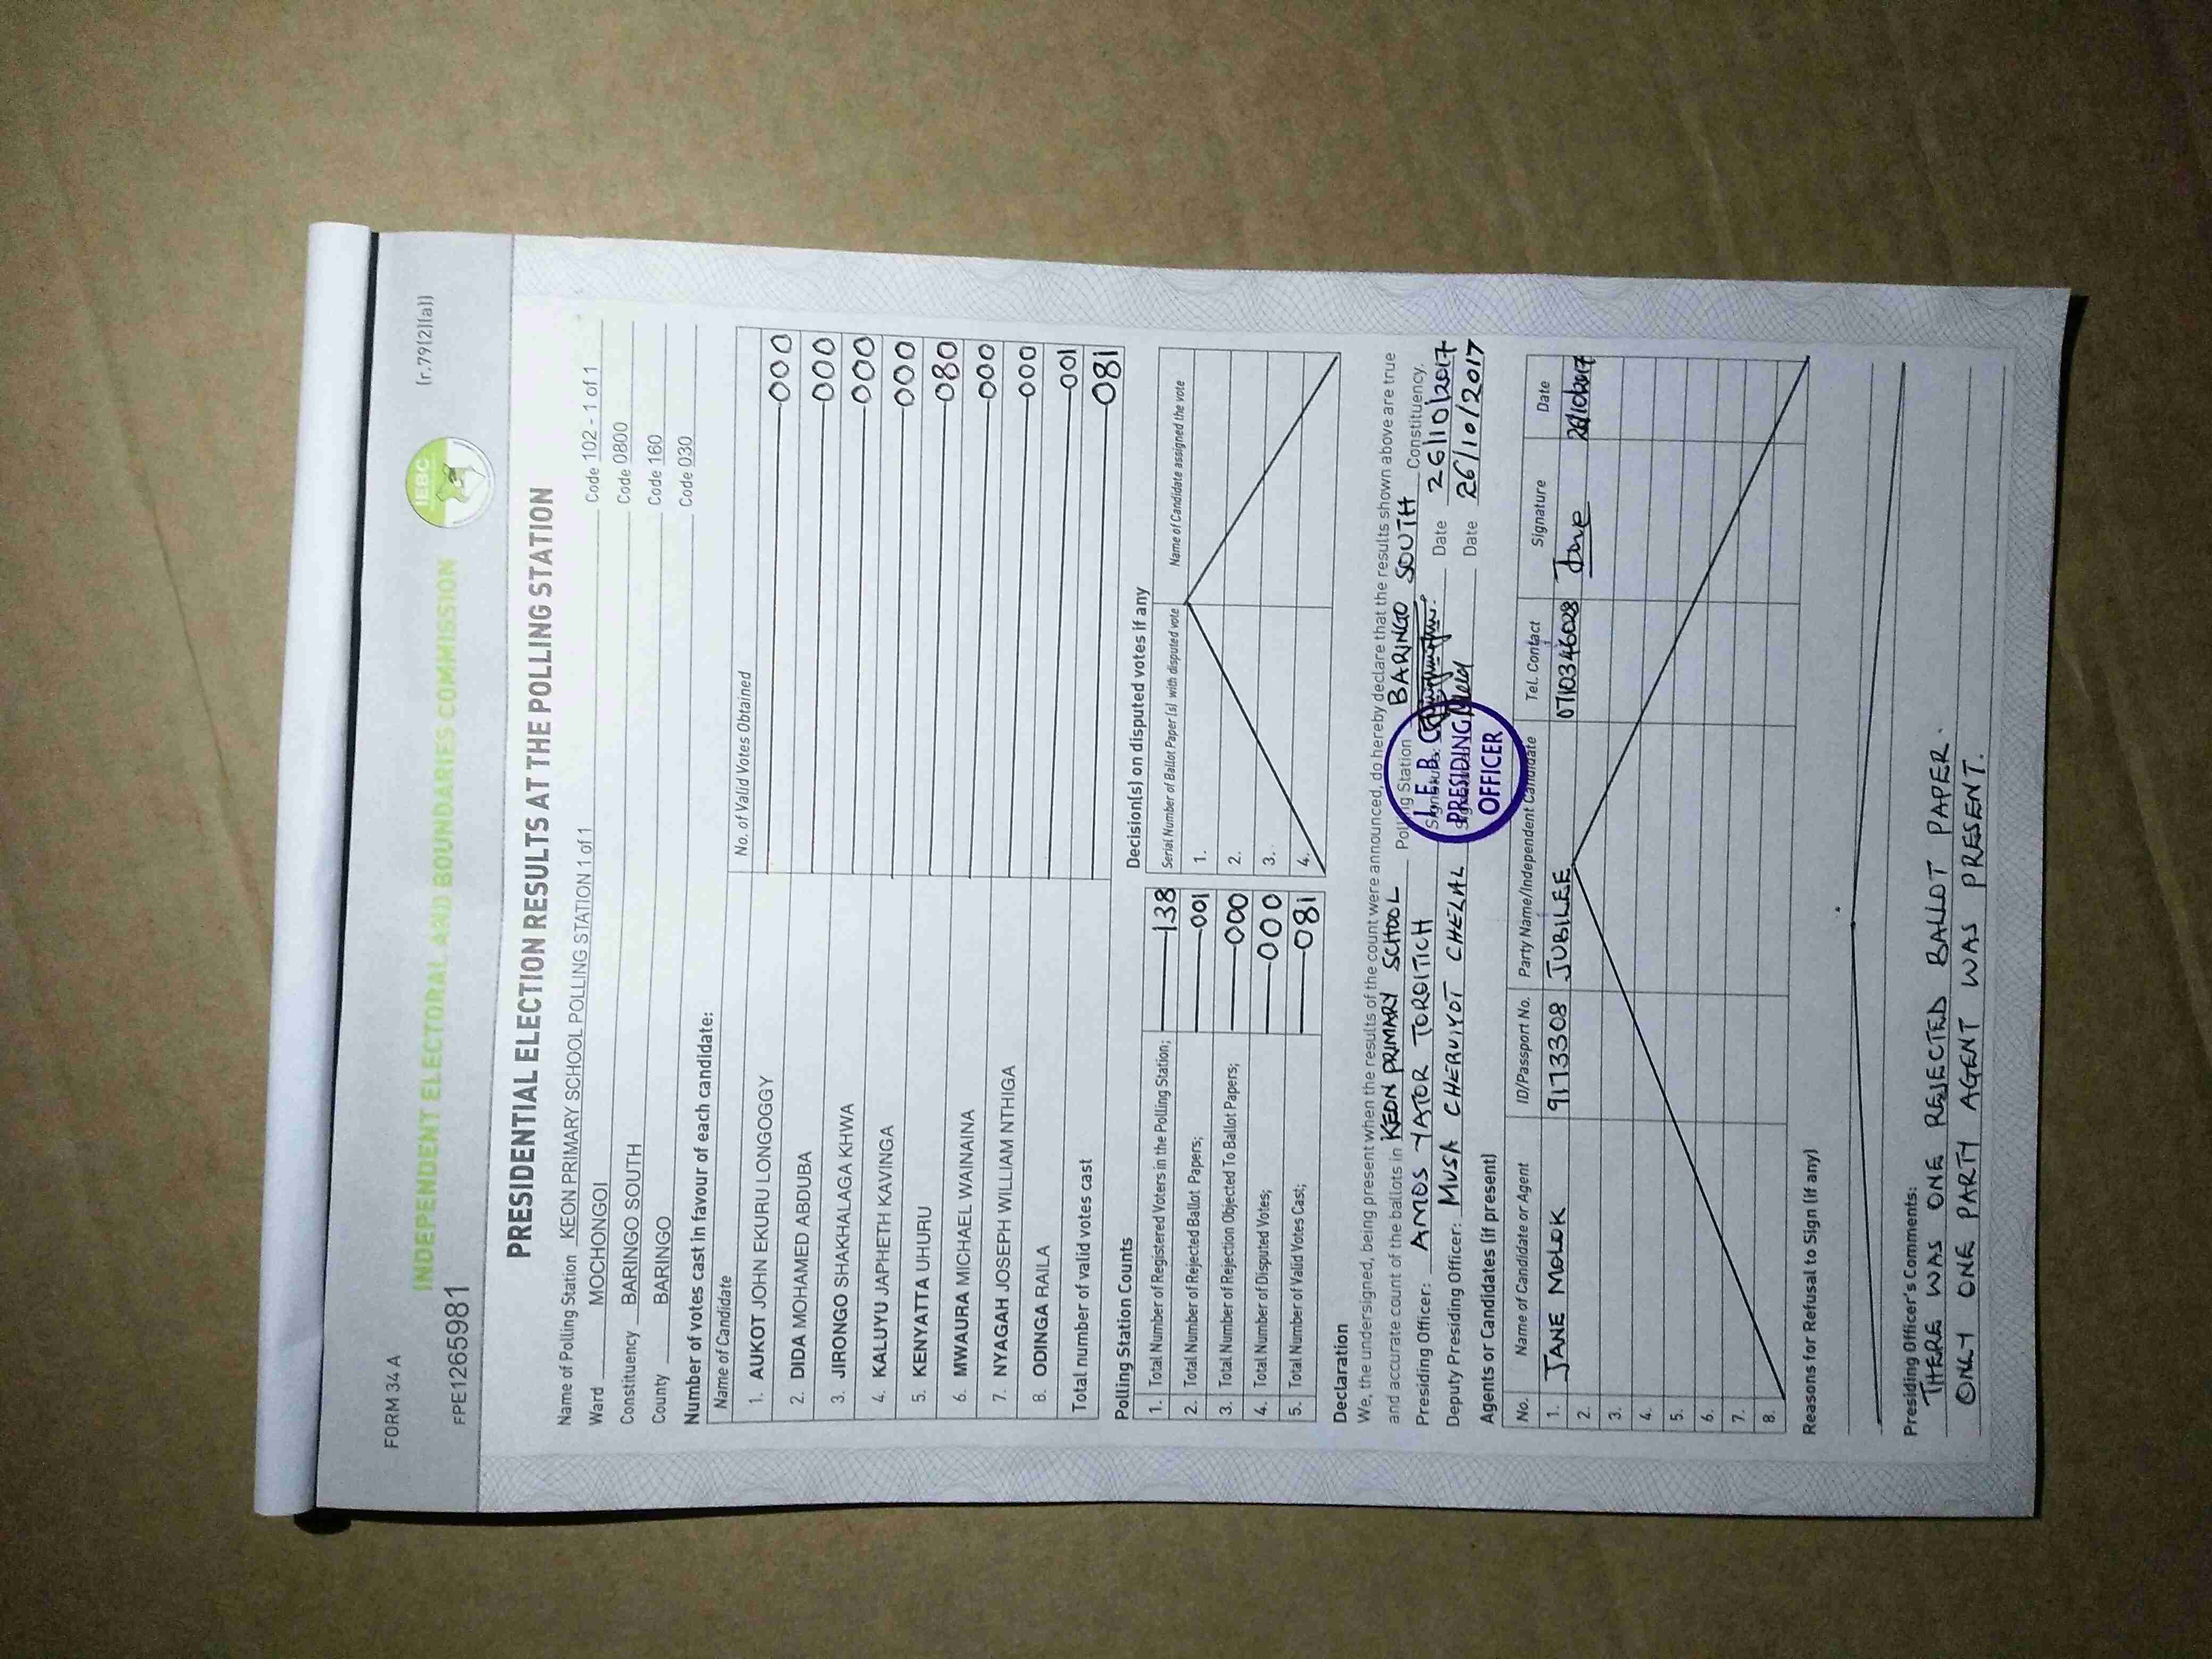 FORM 34 A
(r.79(2)(a))
INDEPENDENT ELECTORAL AND BOUNDARIES COMMISSION
IEBC
FPE1265981
PRESIDENTIAL ELECTION RESULTS AT THE POLLING STATION
Name of Polling Station KEON PRIMARY SCHOOL POLLING STATION 1 of 1 Code 102 - 1 of 1
Ward MOCHONGOI Code 0800
Constituency BARINGO SOUTH Code 160
County BARINGO Code 030
Number of votes cast in favour of each candidate:
Name of Candidate No. of Valid Votes Obtained
1. AUKOT JOHN EKURU LONGOGGY 000
2. DIDA MOHAMED ABDUBA 000
3. JIRONGO SHAKHALAGA KHWA 000
4. KALUYU JAPHETH KAVINGA 000
5. KENYATTA UHURU 080
6. MWAURA MICHAEL WAINAINA 000
7. NYAGAH JOSEPH WILLIAM NTHIGA 000
8. ODINGA RAILA 001
Total number of valid votes cast 081
Polling Station Counts
1. Total Number of Registered Voters in the Polling Station; 138
2. Total Number of Rejected Ballot Papers; 001
3. Total Number of Rejection Objected To Ballot Papers; 000
4. Total Number of Disputed Votes; 000
5. Total Number of Valid Votes Cast; 081
Decision(s) on disputed votes if any
Serial Number of Ballot Paper (s) with disputed vote Name of Candidate assigned the vote
1.
2.
3.
4.
Declaration
We, the undersigned, being present when the results of the count were announced, do hereby declare that the results shown above are true
and accurate count of the ballots in KEON PRIMARY SCHOOL Polling Station BARINGO SOUTH Constituency.
Presiding Officer: AMOS YATOR TOROITICH Signature: Date 26/10/2017
Deputy Presiding Officer: MUSA CHERUIYOT CHELAL Date 26/10/2017
PRESIDING
OFFICER
Agents or Candidates (if present)
No. Name of Candidate or Agent ID/Passport No. Party Name/Independent Candidate Tel. Contact Signature Date
1. JANE MOLOK 9173308 JUBILEE 0710346028 Jane 26/10/2017
2.
3.
4.
5.
6.
7.
8.
Reasons for Refusal to Sign (if any)
Presiding Officer's Comments:
THERE WAS ONE REJECTED BALLOT PAPER.
ONLY ONE PARTY AGENT WAS PRESENT.